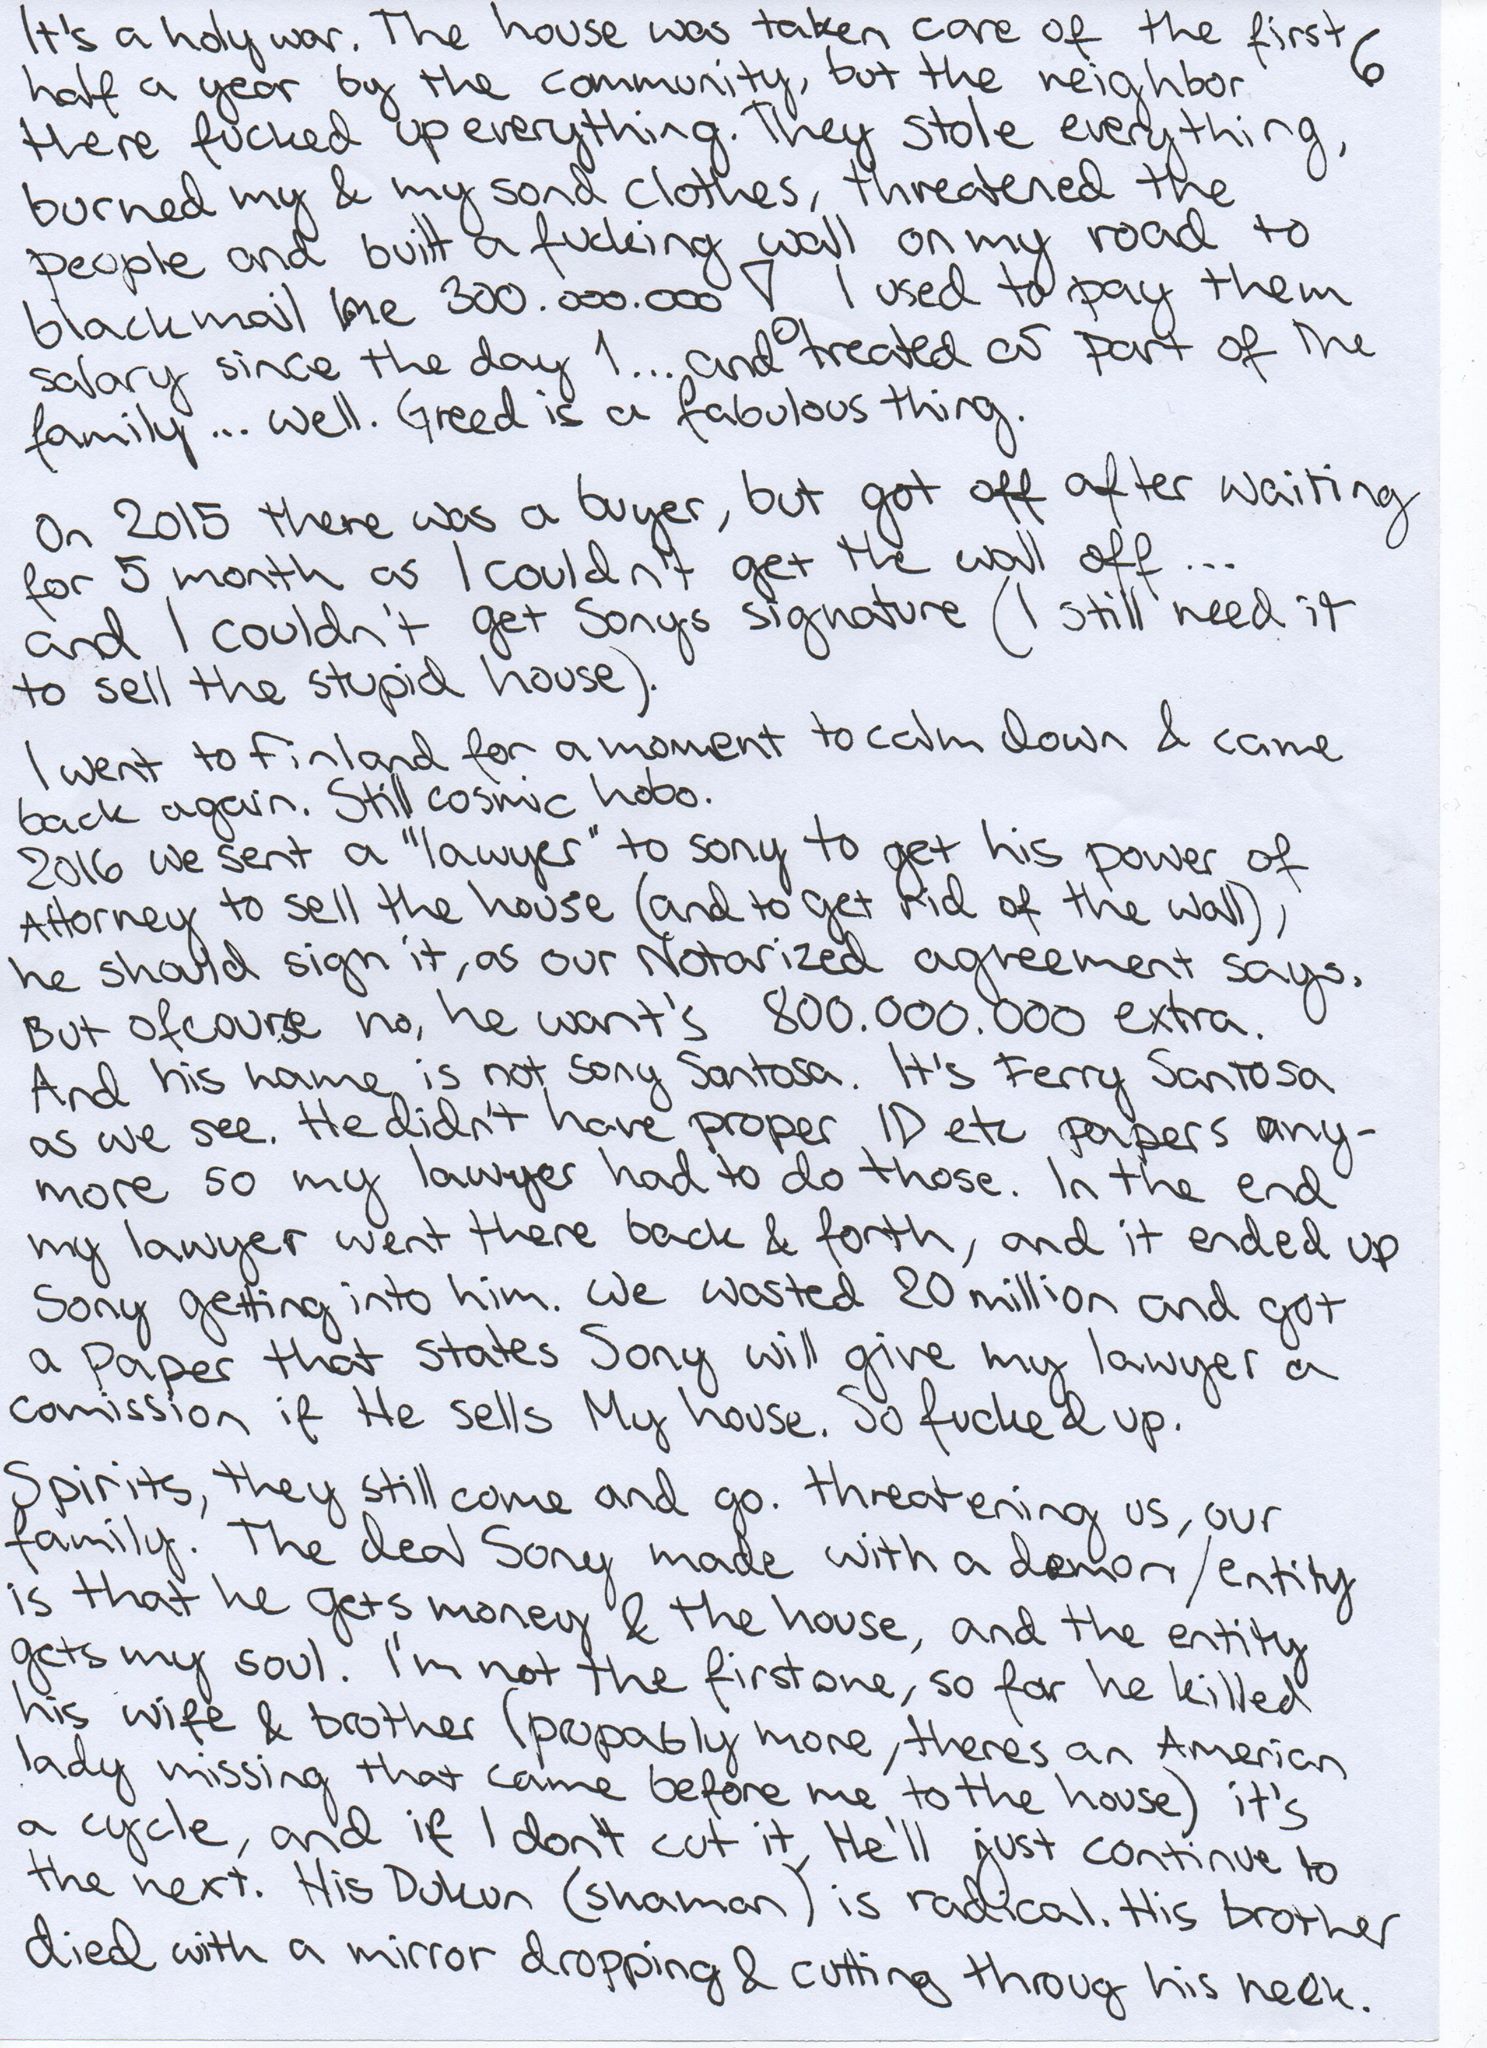 It's a holy war. The house was taken care of the first 6
half a year by the community, but the neighbor
there fucked up everything. They stole everything,
burned my & my sond clothes, threatened the
people and built a fucking wall on my road to
blackmail me 300.000.000! I used to pay them
salary since the day 1... and treated as part of the
family... well. Greed is a fabulous thing.
On 2015 there was a buyer, but got off after waiting
for 5 month as I couldn't get the wall off...
and I couldn't get Sonys signature (I still need it
to sell the stupid house).
I went to Finland for a moment to calm down & came
back again. Still cosmic hobo.
2016 we sent a "lawyer" to sony to get his power of
Attorney to sell the house (and to get rid of the wall),
he should sign it, as our Notarized agreement says.
But ofcourse no, he want's 800.000.000 extra.
And his name is not sony Santosa. It's Ferry Santosa
as we see. He didn't have proper ID etc papers any-
more so my lawyer had to do those. In the end
my lawyer went there back & forth, and it ended up
Sony getting into him. We wasted 20 million and got
a Paper that states Sony will give my lawyer a
comission if He sells My house. So fucked up.
Spirits, they still come and go. threatening us, our
family. The deal Sony made with a demon/entity
is that he gets money & the house, and the entity
gets my soul. I'm not the first one, so far he killed
his wife & brother (propably more, theres an American
lady missing that came before me to the house) it's
a cycle, and if I don't cut it, He'll just continue to
the next. His Dukun (shaman) is radical. His brother
died with a mirror dropping & cutting throug his neck.